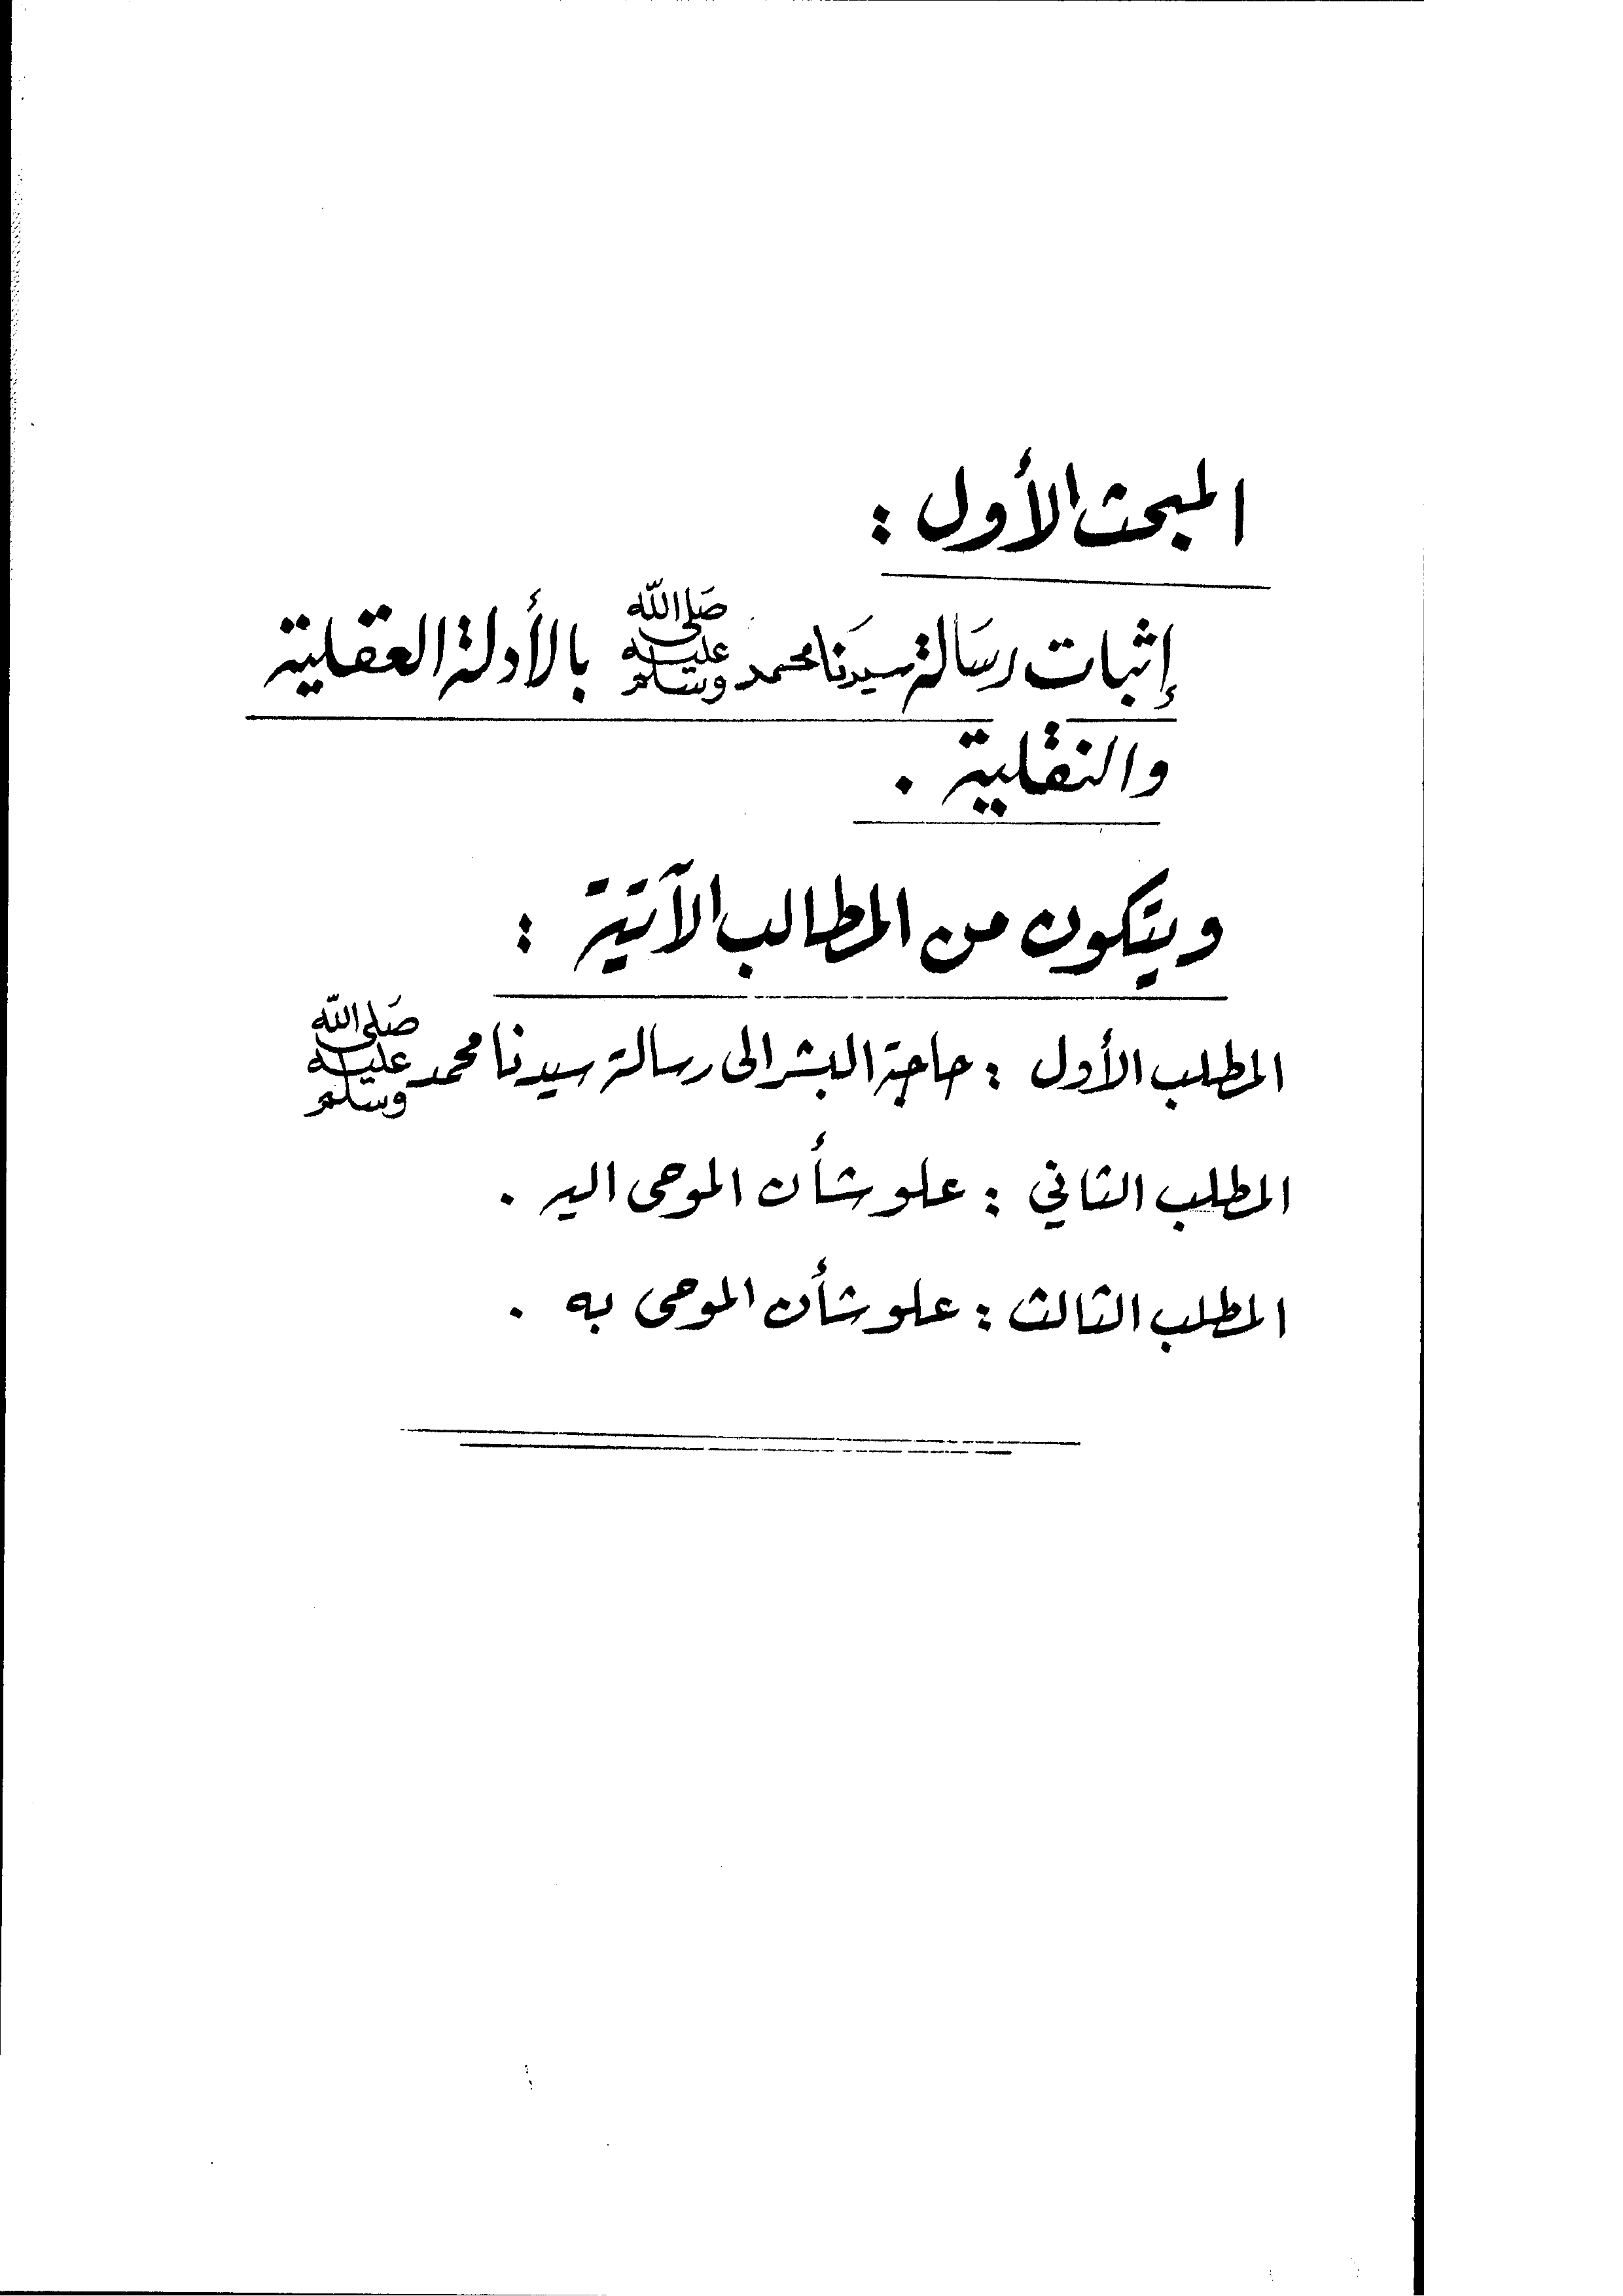 المبحث الأول :
إثبات رسَالة سيدنَا محمد صَلى الله عليه وسَلم بالأدلة العقلية
والنقلية .
ويتكون من المطالب الآتية :
المطلب الأول : حاجة البشر الى رسالة سيدنا محمد صَلى الله عليه وسلم
المطلب الثاني : علو شأن الموحى اليه .
المطلب الثالث : علو شأن الموحى به .